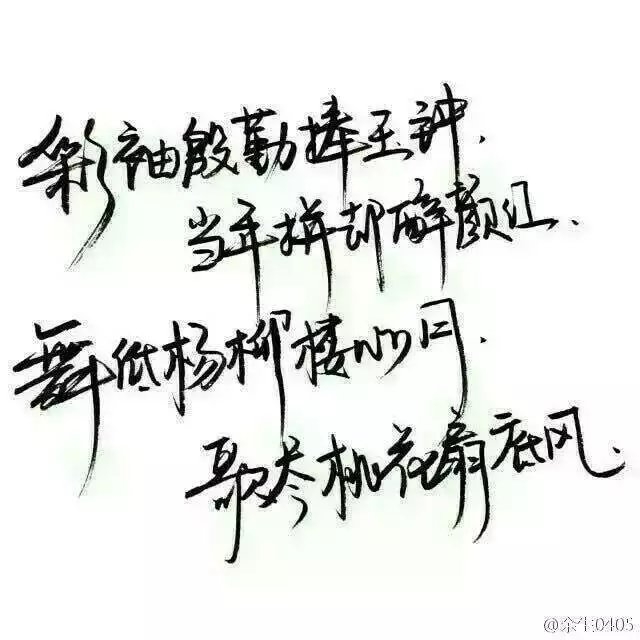 彩袖殷勤捧玉钟.
当年拼却醉颜红.
舞低杨柳楼心月.
歌尽桃花扇底风.
@余生0405